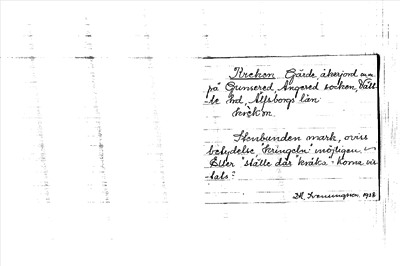 Krekon Gärde, åkerjord m.m.
på Gunnered, Angered socken, Vätt-
-le hd, Älfsborgs län.
krèkon
Stenbunden mark, oviss
betydelse "kringeln" möjligen.
Eller "ställe där "kråk"-korna vis-
-tats?
Svenungsson. 1928